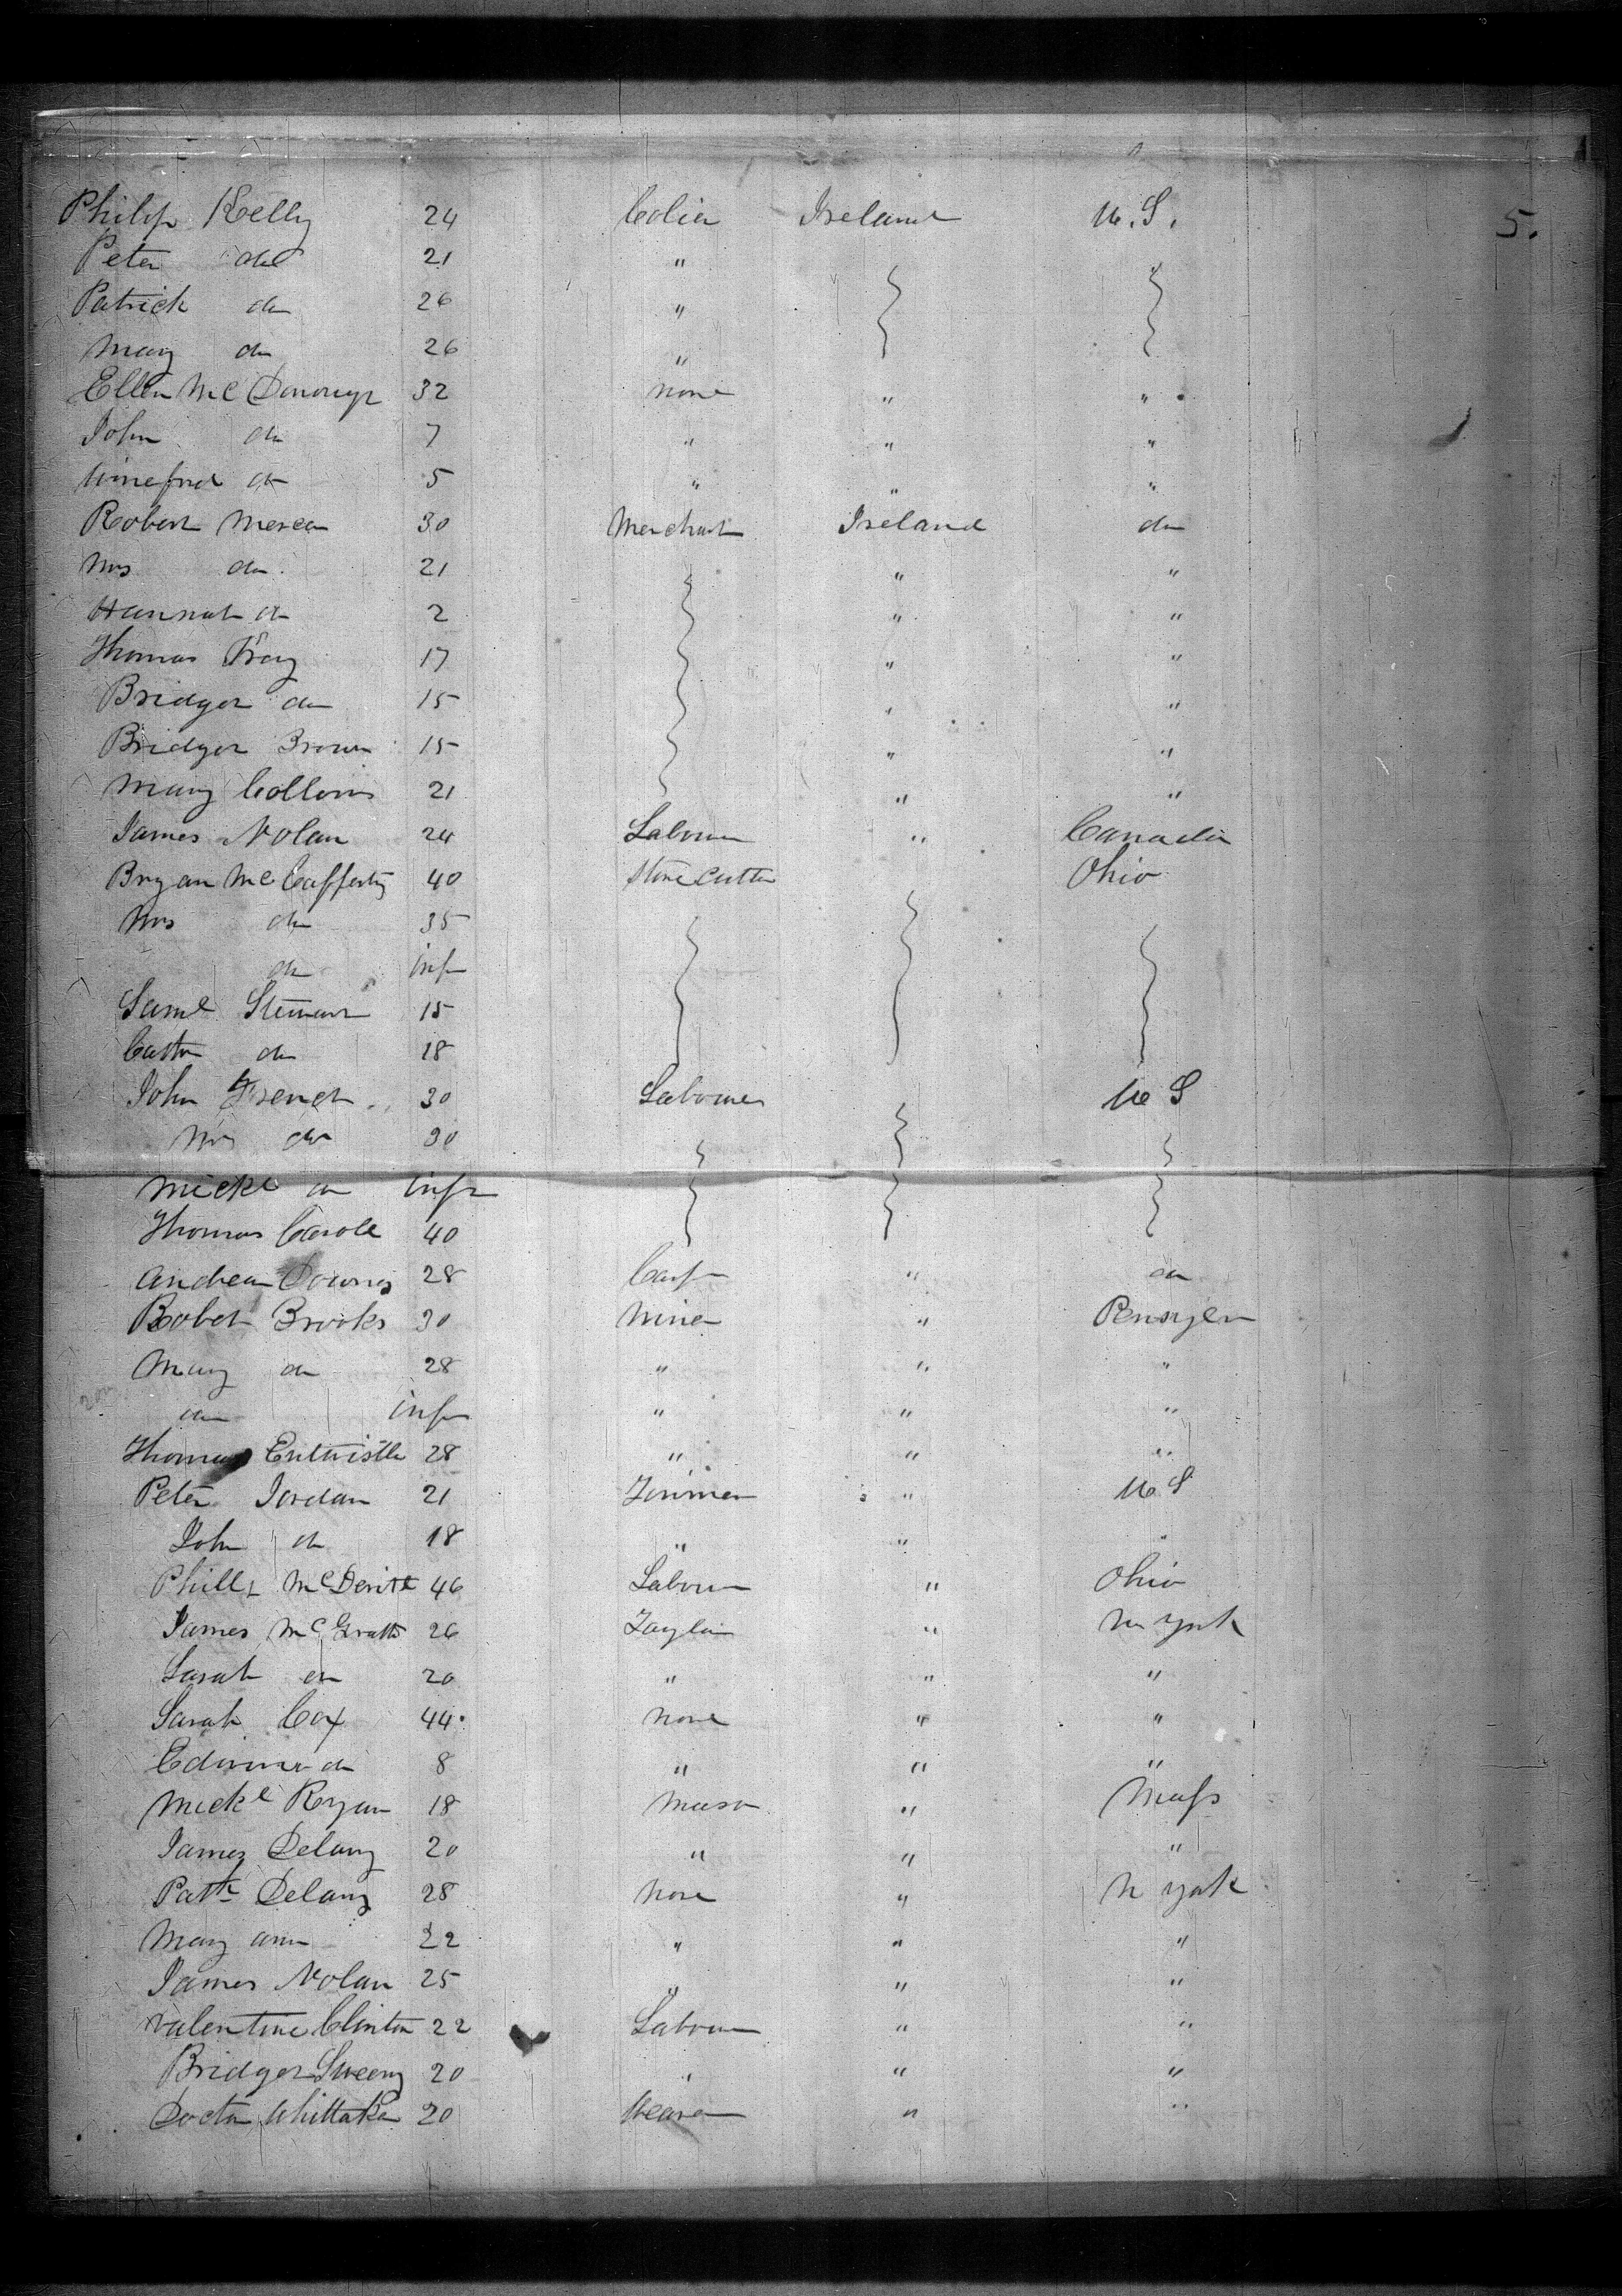 Philip Kelly 24 Colier Ireland U.S. 5.
Peter do 21 "
Patrick do 26 "
Mary do 26 "
Ellen McDonough 32 none " "
John do 7 " " "
Wineford do 5 " " "
Robert Mercer 30 Merchant Ireland do
Mrs do 21 " "
Hannah do 2 " "
Thomas 17 " "
Bridget do 15 " "
Bridget Brown 15 " "
Mary Collons 21 " "
James Nolan 24 Labourer " Canada
Bryan McCafferty 40 Stone Cutter Ohio
Mrs do 35
do inft
Saml Stewart 15
do 18
John French 30 Labourer U S
Mrs do 30
Michl do inft
Thomas Carole 40
Andrew Downes 28 Carp " do
Robert Brooks 30 Miner "
Mary do 28 " " "
do inft " " "
Thomas Entwistle 28 " " "
Peter Jordan 21 " U S
John do 18 " " "
Phillp McDevitt 46 Labourer " Ohio
James McGrath 26 Taylor " N York
Sarah do 20 " " "
Sarah Cox 44 none " "
Edward do 8 " " "
Michl Ryan 18 Mason " Mass
James Delany 20 " " "
Patk Delany 28 none " N York
Mary Ann 22 " " "
James Nolan 25 " " "
Valentine Clinton 22 Labourer " "
Bridget Sweeny 20 " " "
Whittaker 20 Weaver " "